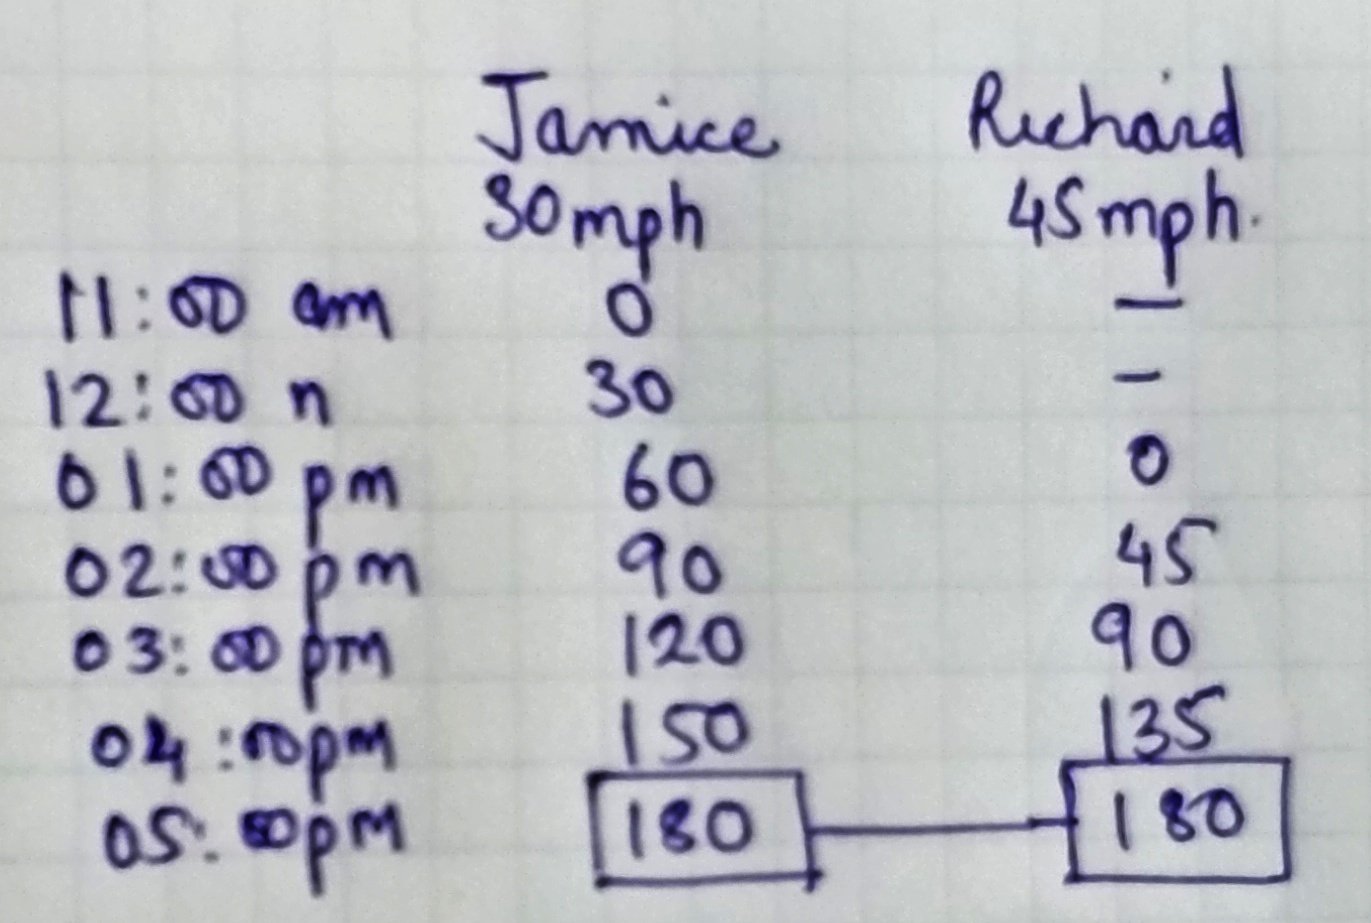 Janice Richard
30mph 45mph.
11:00 am 0 —
12:00 n 30 –
01:00 pm 60 0
02:00 pm 90 45
03:00 pm 120 90
04:00pm 150 135
05:00pm 180 180